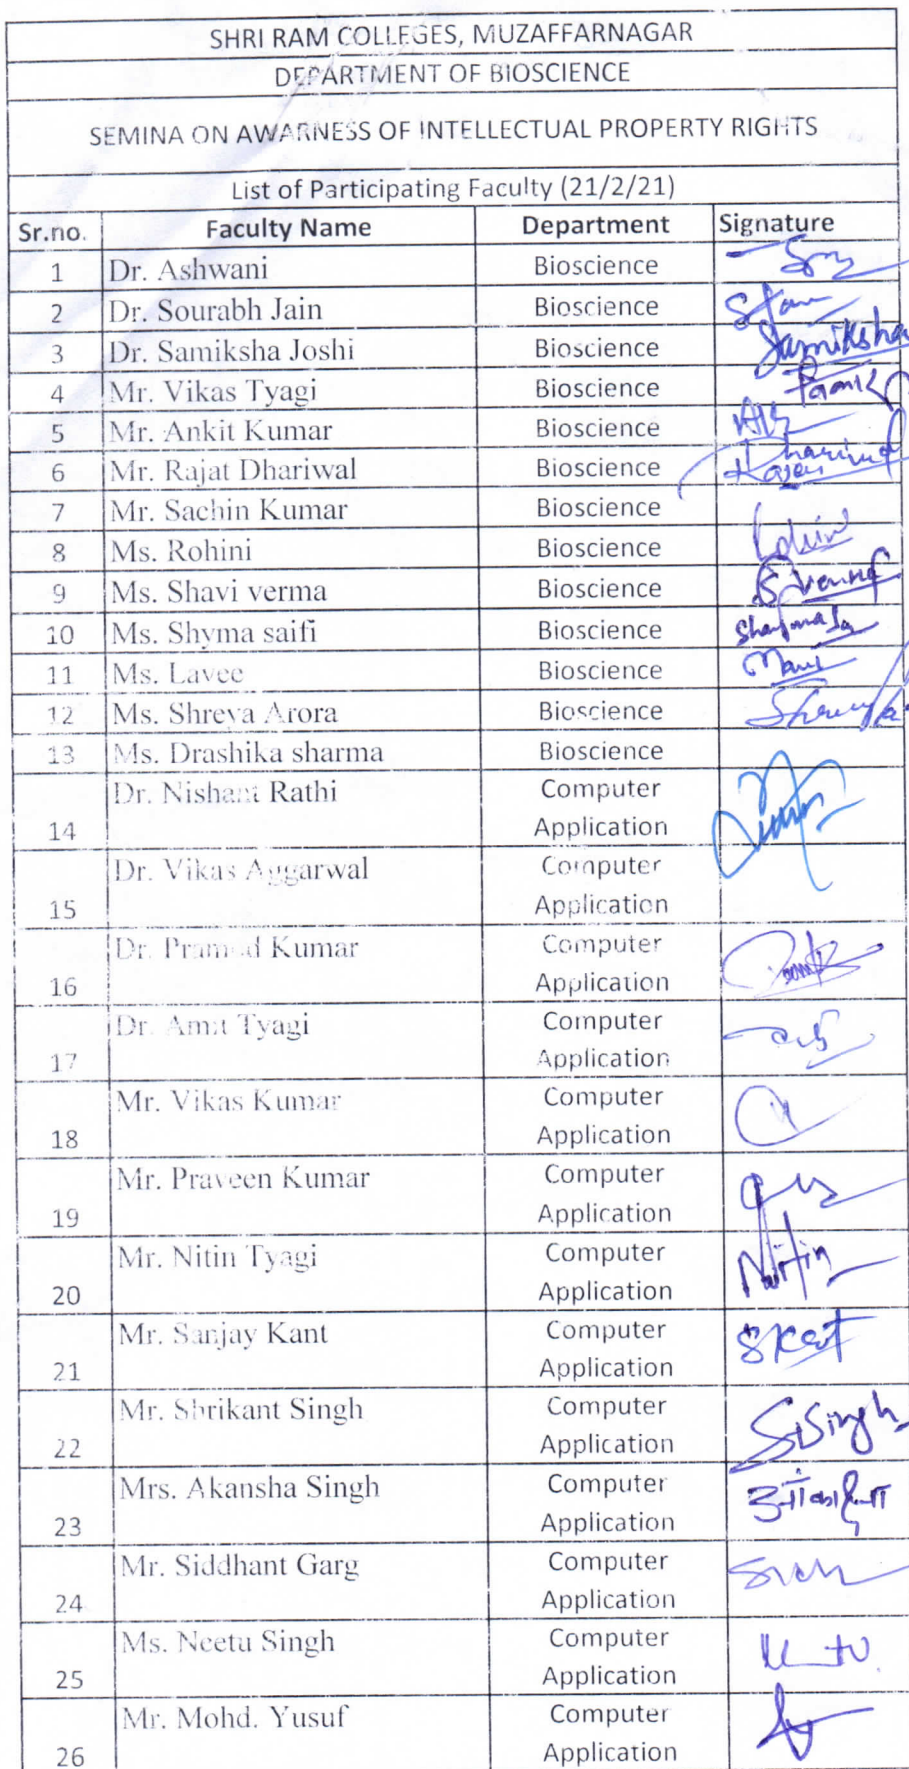 SHRI RAM COLLEGES, MUZAFFARNAGAR
DEPARTMENT OF BIOSCIENCE
SEMINA ON AWARNESS OF INTELLECTUAL PROPERTY RIGHTS
List of Participating Faculty (21/2/21)
Sr.no. Faculty Name Department Signature
1 Dr. Ashwani Bioscience
2 Dr. Sourabh Jain Bioscience
3 Dr. Samiksha Joshi Bioscience Samiksha
4 Mr. Vikas Tyagi Bioscience
5 Mr. Ankit Kumar Bioscience
6 Mr. Rajat Dhariwal Bioscience
7 Mr. Sachin Kumar Bioscience
8 Ms. Rohini Bioscience
9 Ms. Shavi verma Bioscience
10 Ms. Shyma saifi Bioscience
11 Ms. Lavee Bioscience
12 Ms. Shreya Arora Bioscience
13 Ms. Drashika sharma Bioscience
Dr. Nishant Rathi Computer
14 Application
Dr. Vikas Aggarwal Computer
15 Application
Dr. Pramod Kumar Computer
16 Application
Dr. Amit Tyagi Computer
17 Application
Mr. Vikas Kumar Computer
18 Application
Mr. Praveen Kumar Computer
19 Application
Mr. Nitin Tyagi Computer
20 Application Nitin
Mr. Sanjay Kant Computer
21 Application
Mr. Shrikant Singh Computer
22 Application
Mrs. Akansha Singh Computer
23 Application
Mr. Siddhant Garg Computer
24 Application
Ms. Neetu Singh Computer
25 Application
Mr. Mohd. Yusuf Computer
26 Application